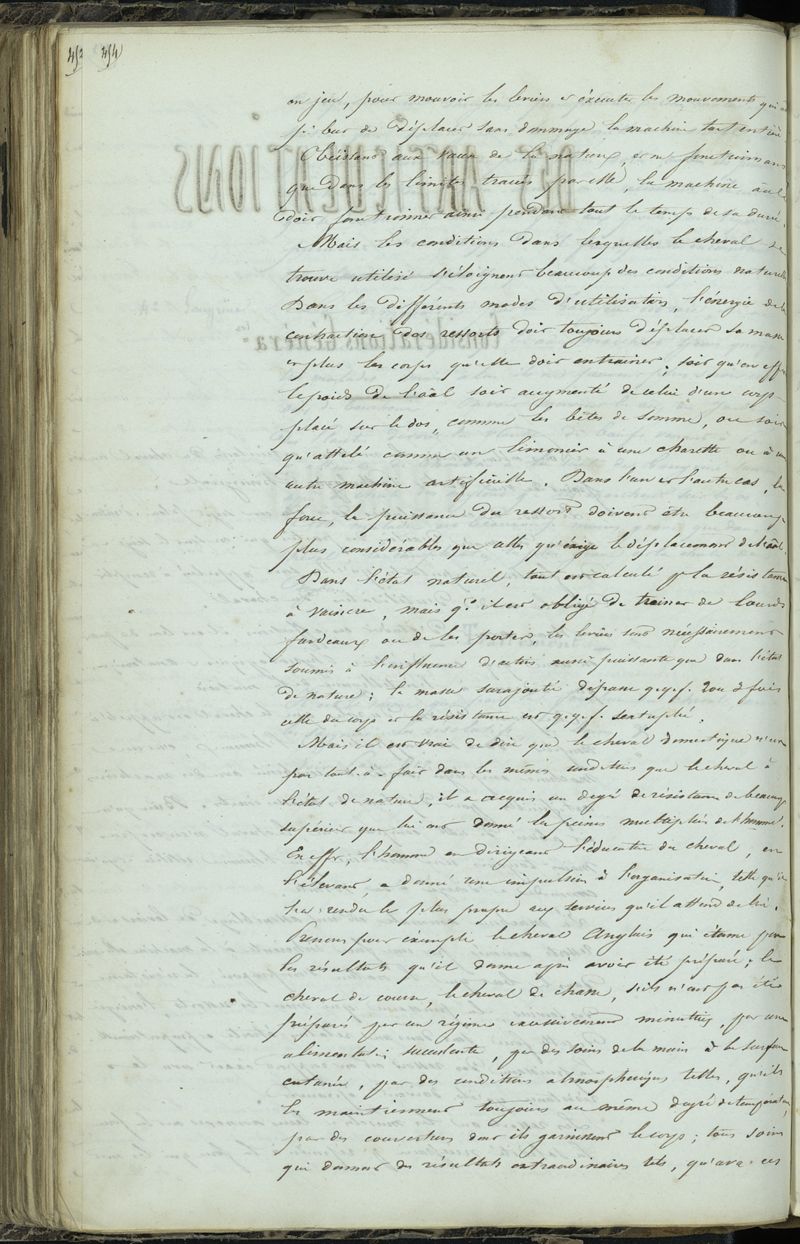 452 454
en jeu, pour mouvoir les leviers et éxécuter les mouvements qui ont
pr but de déplacer sans dommage la machine tout entière
Obéissant aux vœux de la nature, et ne fonctionnant
que dans les limites tracées par elle, la machine
doit fonctionner ainsi pendant tout le temps de sa durée.
Mais les conditions dans lesquelles le cheval se
trouve utilisé s'éloignent beaucoup des conditions naturelles
Dans les différents modes d'utilisation, l'énergie de la
contraction des ressorts doit toujours déplacer sa masse
et plus les corps qu'elle doit entrainer, soit qu'en effet
le poids de l'aal soit augmenté de celui d'un corps
placé sur le dos, comme les bêtes de somme, ou soit
qu'attelé comme un limonier à une charette ou à une
autre machine artificielle. Dans l'un et l'autre cas, la
force, la puissance du ressort doivent être beaucoup
plus considérables que celles qu'exige le déplacement de l'aal.
Dans l'état naturel, tout est calculé pr la résistance
à vaincre, mais qd il est obligé de trainer de lourds
fardeaux ou de les porter, les leviers sont nécessairement
soumis à l'influence d'action aussi puissante que dans l'état
de nature; la masse surajoutée dépasse q.q.f. 2 ou 3 fois
celle du corps et la résistance est q.q.f. sextuplée.
Mais il est vrai de dire que le cheval domestique n'est
pas tout-à-fait dans les mêmes conditions que le cheval à
l'état de nature, il a acquis un degré de résistance de beaucoup
supérieur que lui ont donné les peines multipliées de l'homme.
En effet, l'homme en dirigeant l'éducation du cheval, en
l'élevant a donné une impulsion à l'organisation, telle qu'il
l'a rendu le plus propre aux services qu'il attend de lui.
Prenons pour exemple le cheval Anglais qui étonne par
les résultats qu'il donne après avoir été préparé; le
cheval de course, le cheval de chasse, s'ils n'ont pas été
préparés par un régime excessivement minutieux, par une
alimentation succulente, par des soins de la main à la surface
cutanée, par des conditions atmosphériques telles, qu'ils
les maintiennent toujours au même degré de température,
par des couvertures dont ils garnissent le corps; tous soins
qui donnent des résultats extraordinaires tels, qu'avec ces